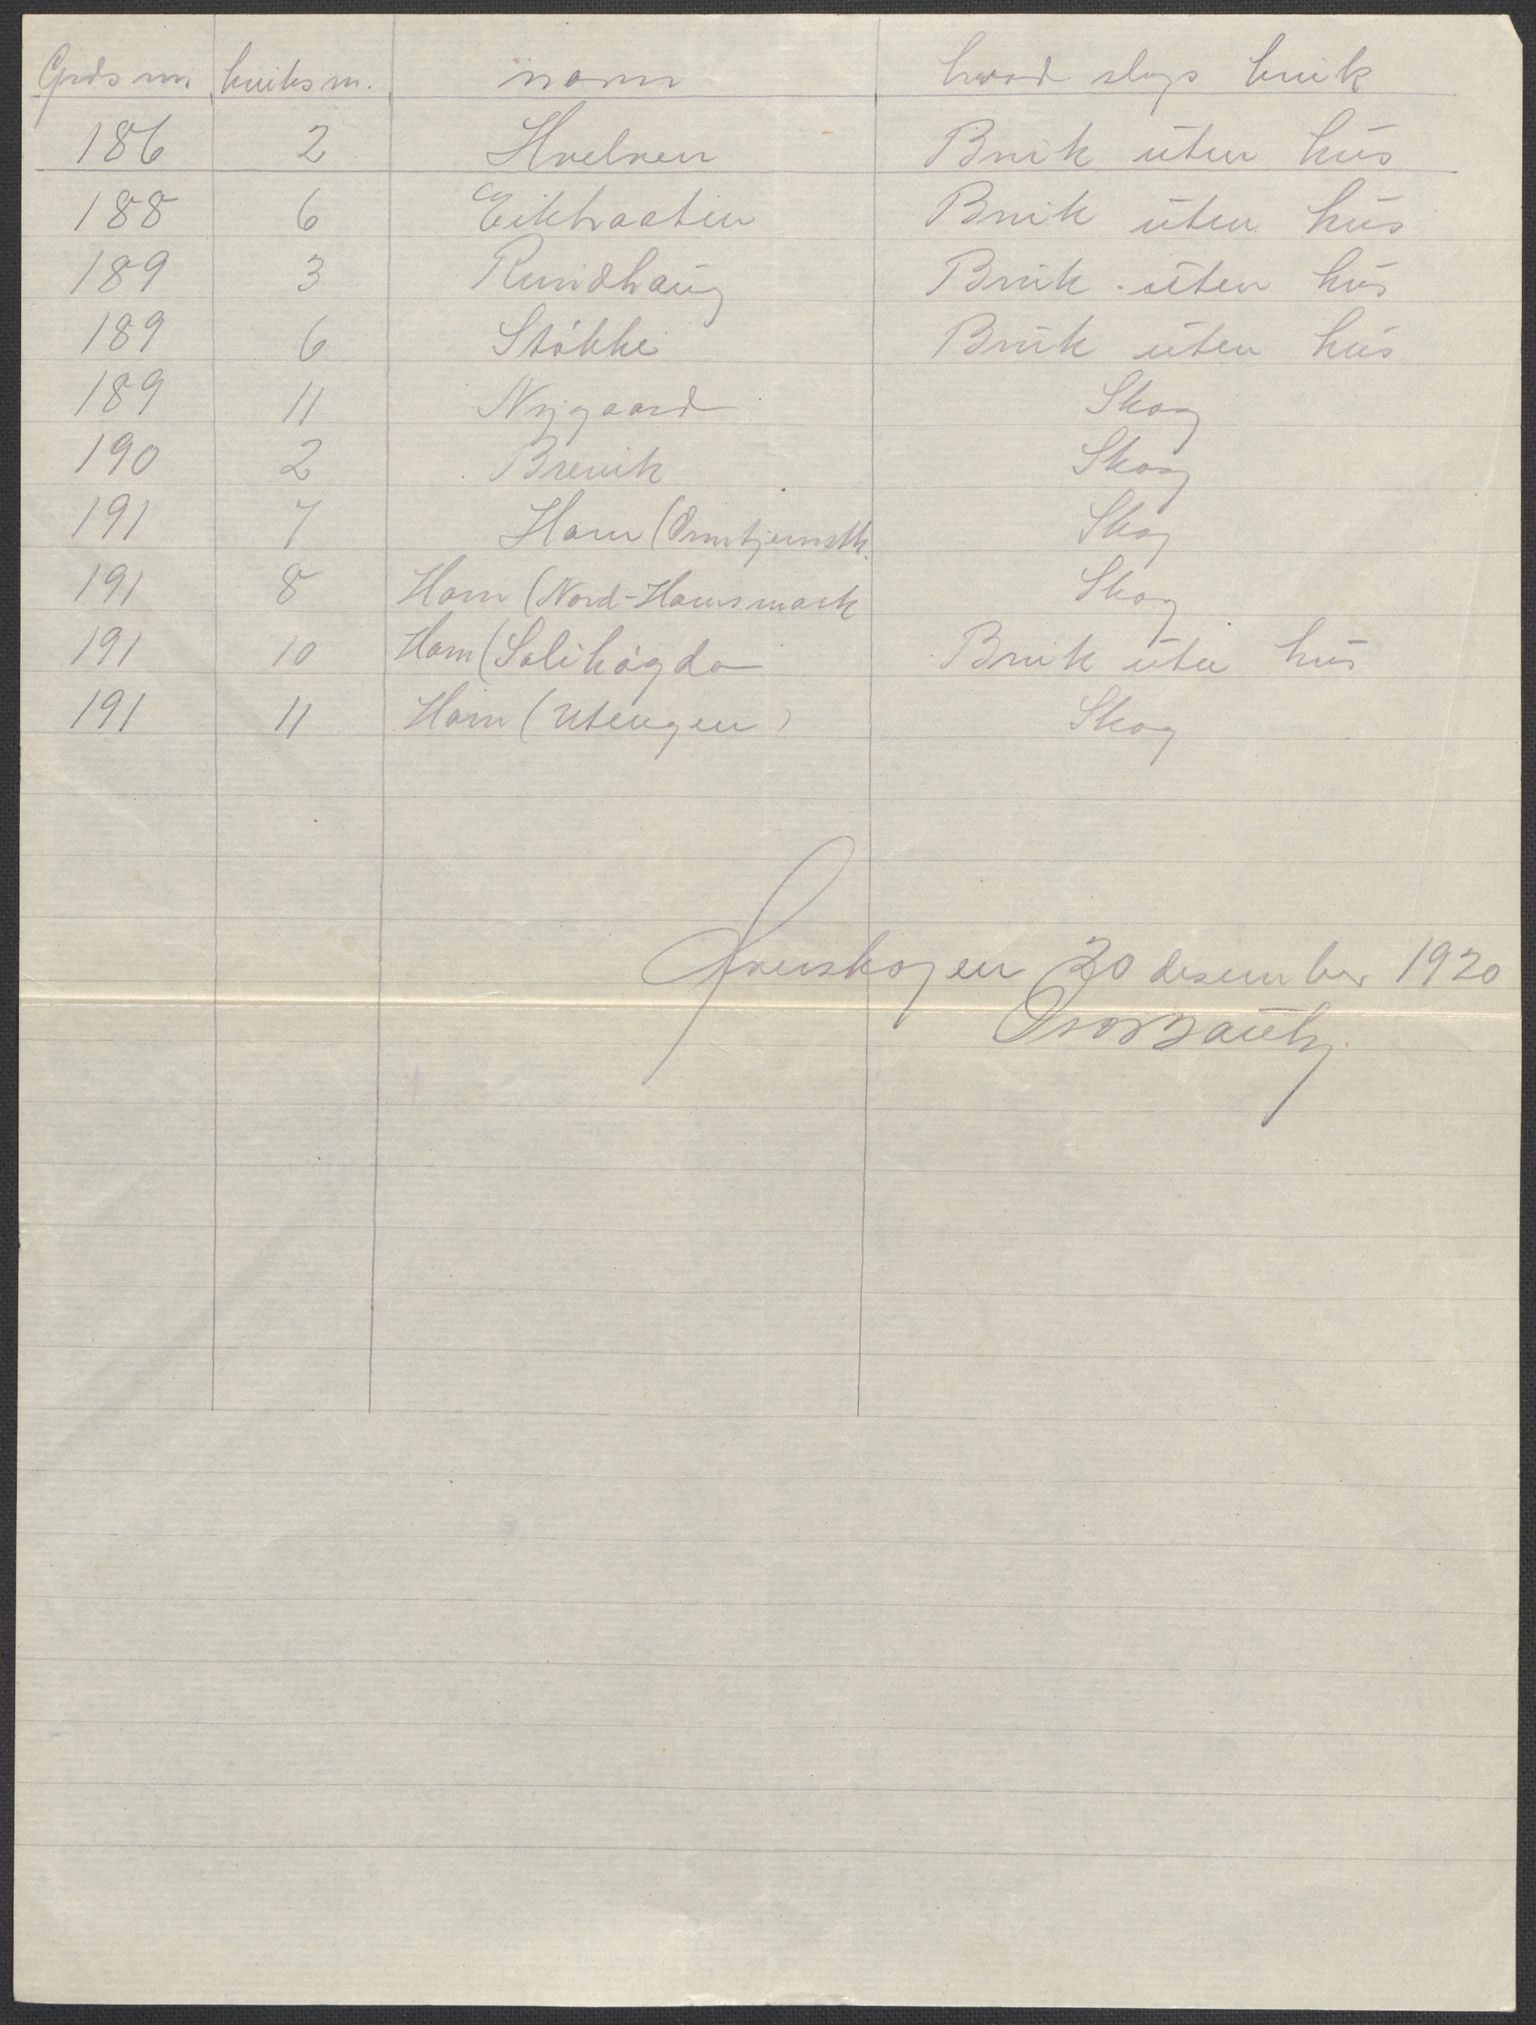 Grds nr. bruks nr. navn hvad slags bruk
186 2 Hvelven Bruk uten hus
188 6 Eikbraaten Bruk uten hus
189 3 Rundhaug Bruk uten hus
189 6 Støkke Bruk uten hus
189 11 Nygaard Skog
190 2 Brevik Skog
191 7 Horn ( Skog
191 8 Horn (Nord-Hornsmark Skog
191 10 Horn (Solihøgda Bruk uten hus
191 11 Horn (Utengen) Skog
20 desember 1920